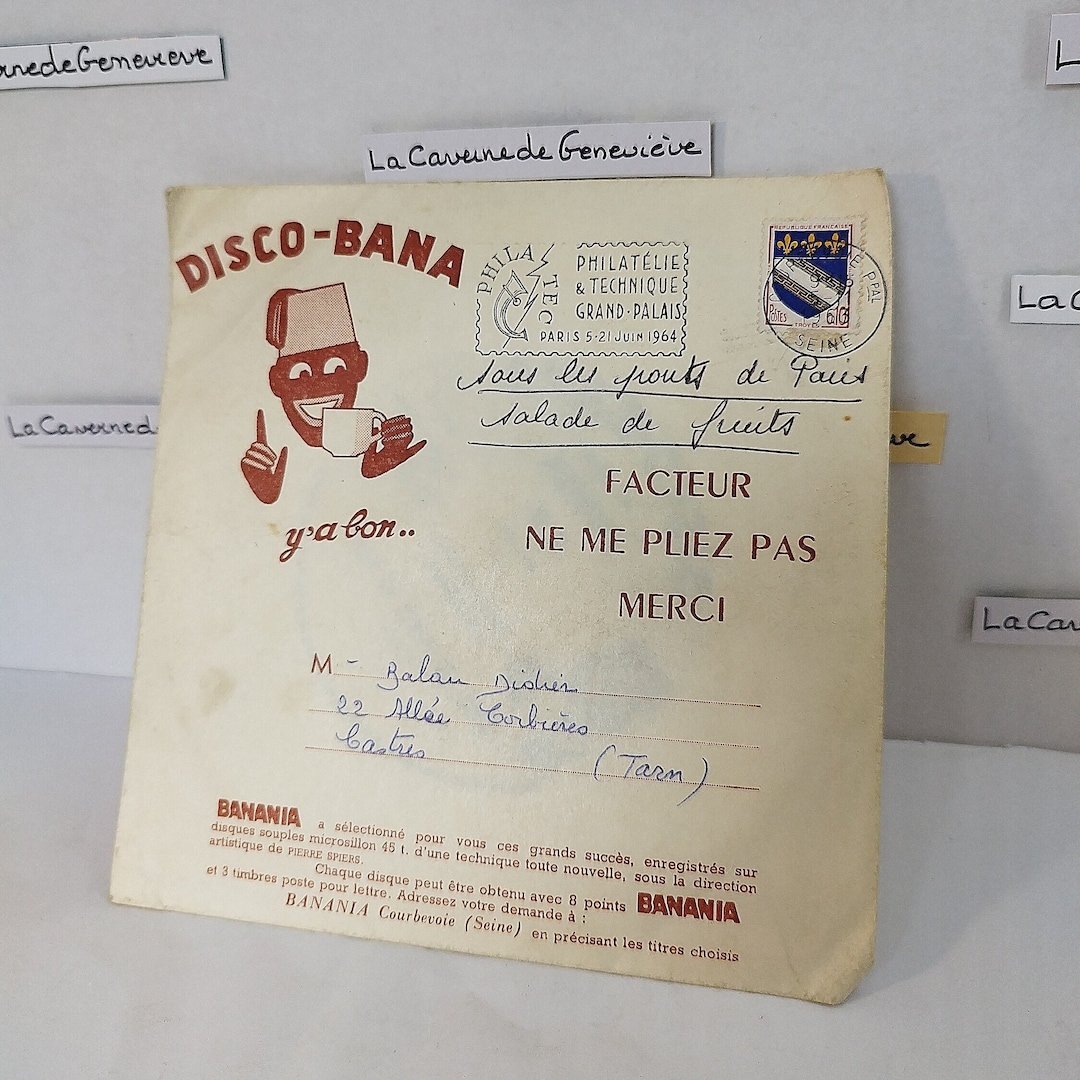 ernedeGenevieve
La Caverne de Geneviève
L
La C
La Caverned
ve
La Cav
DISCO-BANA
PHILATEC
PHILATÉLIE
& TECHNIQUE
GRAND-PALAIS
PARIS 5-21 JUIN 1964
REPUBLIQUE FRANÇAISE
POSTES
TROYES
PPAL
SEINE
Sous les ponts de Paris
salade de fruits
y'a bon..
FACTEUR
NE ME PLIEZ PAS
MERCI
M - Balan Didier
22 Allée Corbières
Castres (Tarn)
BANANIA a sélectionné pour vous ces grands succès, enregistrés sur
disques souples microsillon 45 t. d'une technique toute nouvelle, sous la direction
artistique de PIERRE SPIERS.
Chaque disque peut être obtenu avec 8 points BANANIA
et 3 timbres poste pour lettre. Adressez votre demande à :
BANANIA Courbevoie (Seine) en précisant les titres choisis